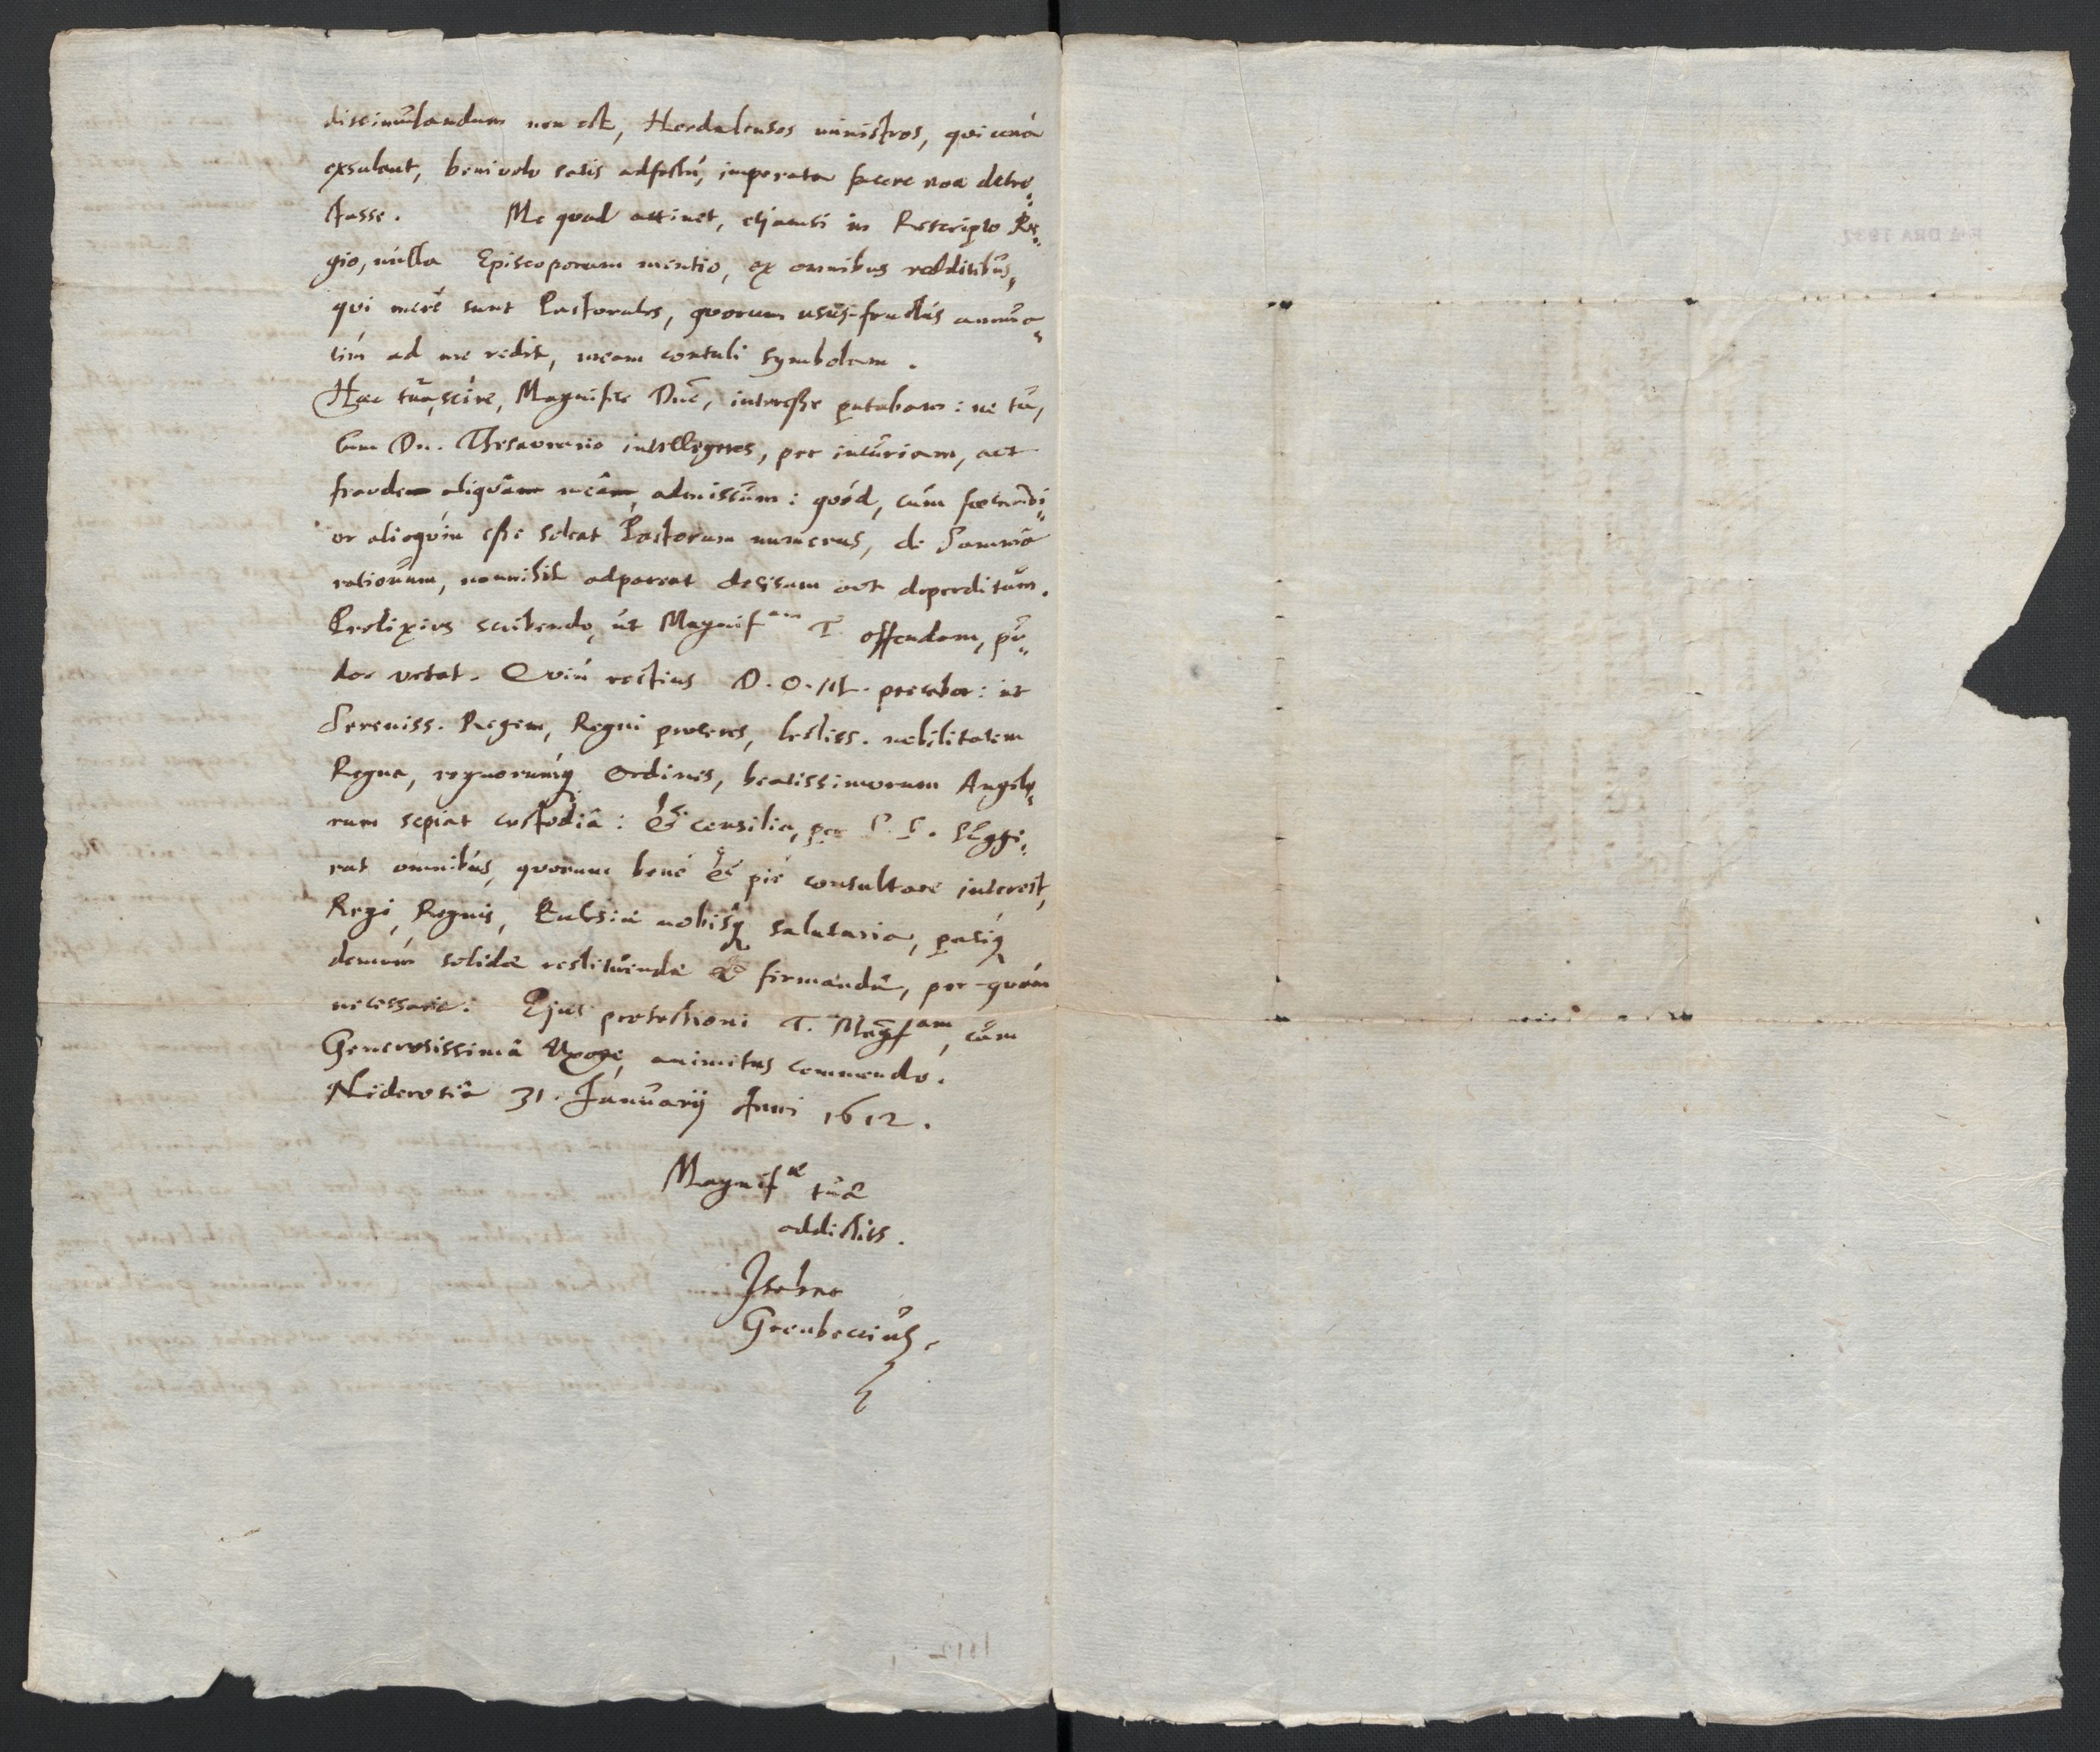 dissimulandum non est, Herdalenses ministros, qui una
exsulant, benivolo satis adfectu, imperata facere non detre-
ctasse. Me quod attinet, etjamsi in Rescripto Re-
gio, nulla Episcoporum mentio, ex omnibus redditibus,
qui merè sunt Pastorales, quorum usus-fructus annua-
tim ad me redit, meam contuli symbolam.
Hæc tuâ scire, Magnifice Dne, interesse putabam: ne tu,
cum Dn. Thesaurario intelligeres, per incuriam, aut
fraudem aliquam meam, admissum: quòd, cum
or alioquin esse soleat Pastorum numerus, de Summâ
rationum, nonnihil adpareat decisum aut deperditum.
Prolixius scribendo, ut Magnif am T. offendam, pu-
dor vetat. Quin rectius D.O.M. precabor: ut
Sereniss. Regem, Regni proceres, lectiss. nobilitatem
Regna, regnorumq; Ordines, beatissimorum Angelo-
rum sepiat custodiâ: & consilia, per S. S. suggi-
rat omnibus, quorum benè & piè consultare interest,
Regi, Regnis, Eccles­iæ nobisq; salutaria, paciq;
demùm solidæ restituendæ & firmandæ, per-quàm
necessaria. Ejus protectioni T. Magf am, cum
Generosissimâ Uxore, animitus commendo.
Niderosiâ 31. Januarij Anni 1612.
Magnif æ tuæ
addictiss.
Isebrae
Gronbeccius.